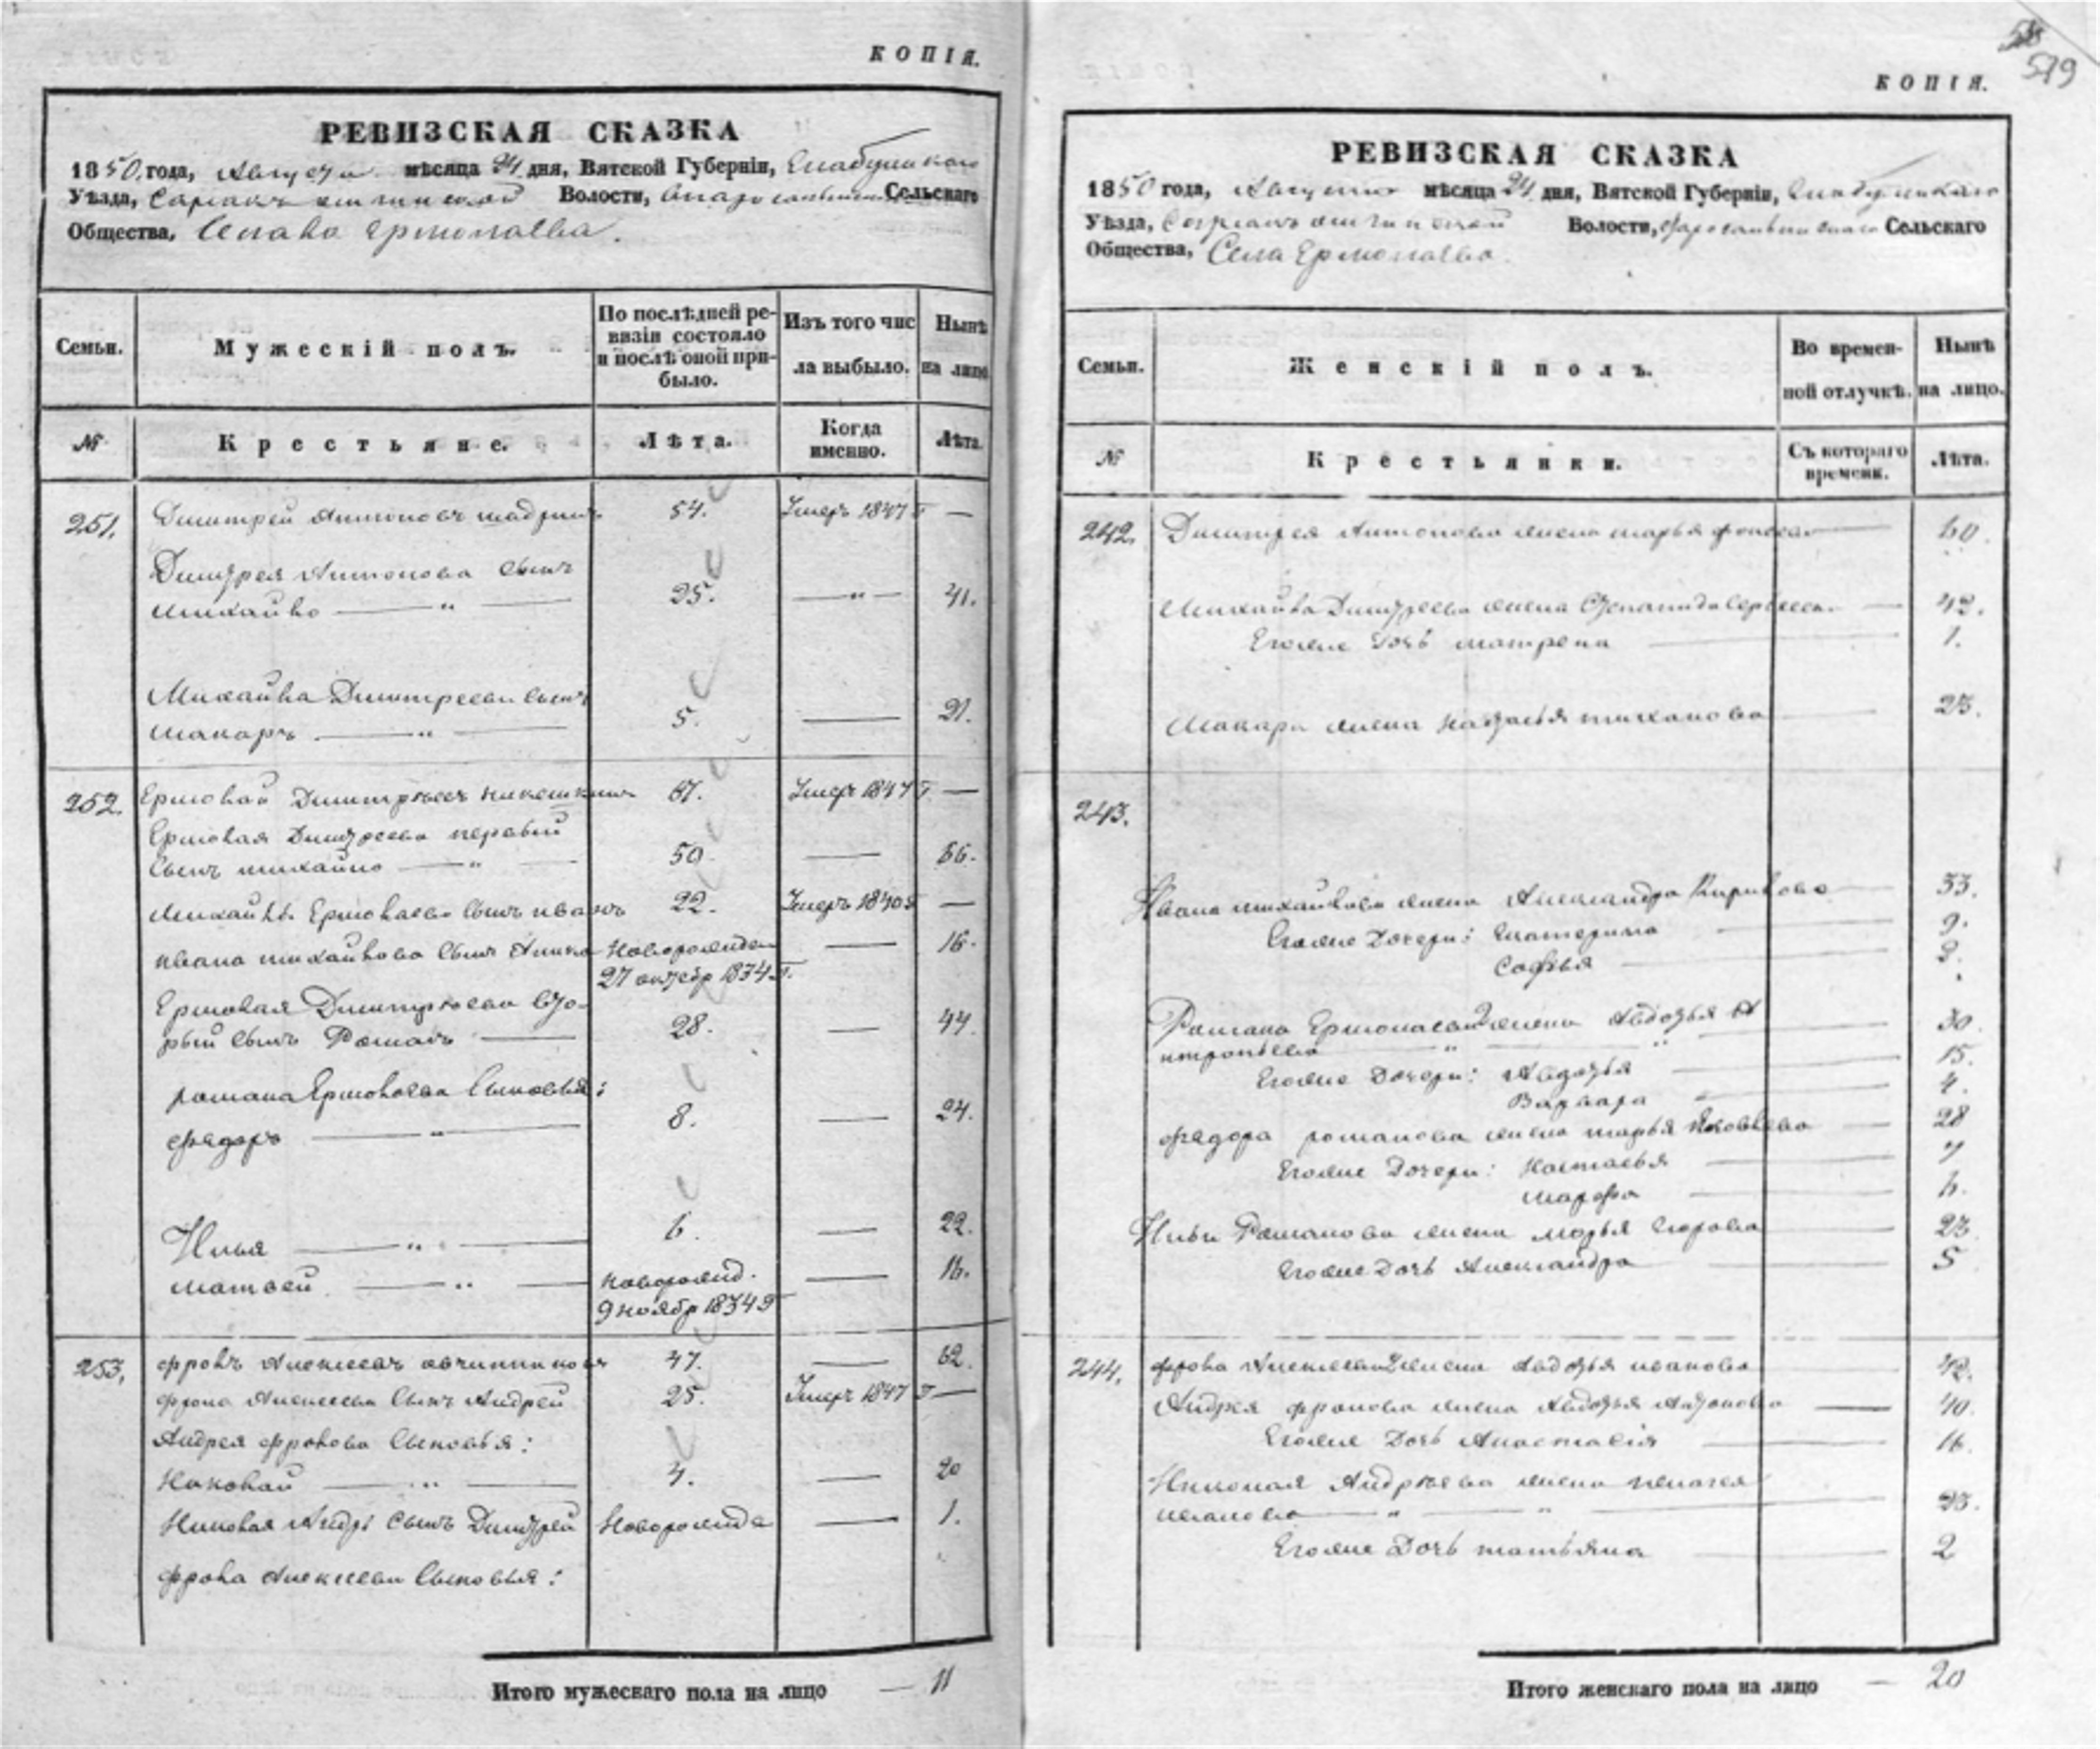 КОПІЯ.
РЕВИЗСКАЯ СКАЗКА
1850 года, Августа мѣсяца 24 дня, Вятской Губерніи, Елабужскаго
Уѣзда, Волости, Сельскаго
Общества, Ермолаева.
Семьи.
Мужескій полъ.
По послѣдней ре-
визіи состояло
и послѣ оной при-
было.
Изъ того чис
ла выбыло.
Нынѣ
на лицо
№
Крестьяне.
Лѣта.
Когда
именно.
Лѣта.
251. Дмитрей Антоновъ 54. Умеръ 1847 г —
Дмитрея Антонова сынъ
Михайло — " — 25. — " — 41.
Михайла Дмитреева сынъ
Макаръ — " — 5. — 21.
252. Ермолай Дмитрѣевъ 67. Умеръ 1847 г. —
Ермолая Дмитреева первый
сынъ Михайло — " — 50. — 66.
Михайлы Ермолаева сынъ Иванъ 22. Умеръ 1840 г —
Ивана Михайлова сынъ Новорожден — 16.
27 октебр 1834 г.
Ермолая Дмитрѣева вто-
рый сынъ Романъ — 28. — 44.
Романа Ермолаева сыновья:
Федоръ — " — 8. — 24.
Илья — " — 6. — 22.
Матвей — " — новорожд. — 16.
9 ноября 1834 г
253. Фролъ Алексеевъ Овчинников 47. — 62.
Фрола Алексеева сынъ Андрей 25. Умеръ 1847 г —
Андрея Фролова сыновья:
Николай — " — 4. — 20
Николая Андр: сынъ Дмитрей Новорожде — 1.
Фрола Алексеева сыновья:
Итого мужескаго пола на лицо — 11
519
КОПІЯ.
РЕВИЗСКАЯ СКАЗКА
1850 года, Августа мѣсяца 24 дня, Вятской Губерніи, Елабужскаго
Уѣзда, Волости, Сельскаго
Общества, Села Ермолаева.
Семьи.
Женскій полъ.
Во времен-
ной отлучкѣ.
Нынѣ
на лицо.
№
Крестьянки.
Съ котораго
времени.
Лѣта.
242. Дмитрея Антонова жена Марья — 60.
Михайла Дмитреева жена Степанида Сергеева — 42.
Его же дочь Матрена — 1.
Макара жена Наталья Тиханова — 23.
243.
Ивана Михайлова жена Александра Кирилова — 33.
Его же дочери: Екатерина — 9.
Софья — 3.
Романа Ермолаева 2 жена Авдотья А
нтропьева — " — " — 30.
Его же дочери: Авдотья — 15.
Варвара — 4.
Федора Романова жена Марья Яковлева — 28
Его же дочери: Настасья — 7
Марфа — 6.
Ильи Романова жена Марья Егорова — 23
Его же дочь Александра — 5
244. Фрола Алексеева 2 жена Авдотья Иванова — 42.
Андрея Фролова жена Авдотья Антонова — 40.
Его же дочь Анастасія — 16.
Николая Андрѣева жена Пелагея
Иванова — " — " — 23.
Его же дочь Татьяна — 2
Итого женскаго пола на лицо — 20